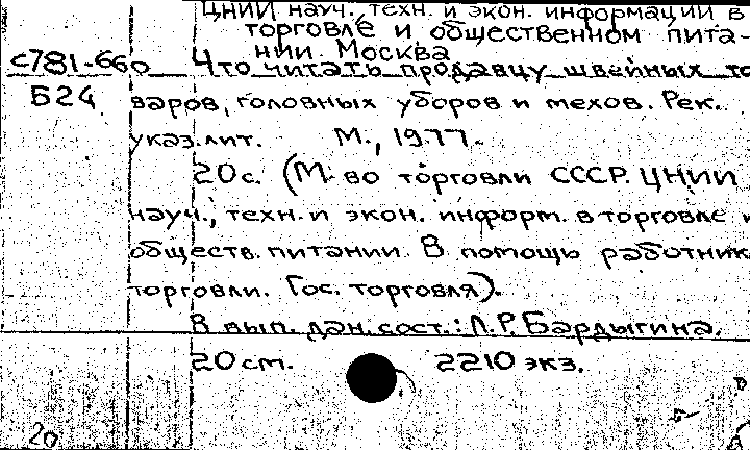 ЦНИИ науч., техн. и экон. информации в
торговле и общественном пита-
нии. Москва
с781-660 Что читать продавцу швейных то
Б24 варов, головных уборов и мехов. Рек.
указ. лит. М., 1977.
20 с. (М-во торговли СССР. ЦНИИ
науч., техн. и экон. информ. в торговле и
обществ. питании. В помощь работник
торговли. Гос. торговля).
В вып. дан. сост.: Л.Р. Бардыгина.
20 см. 2210 экз.
20